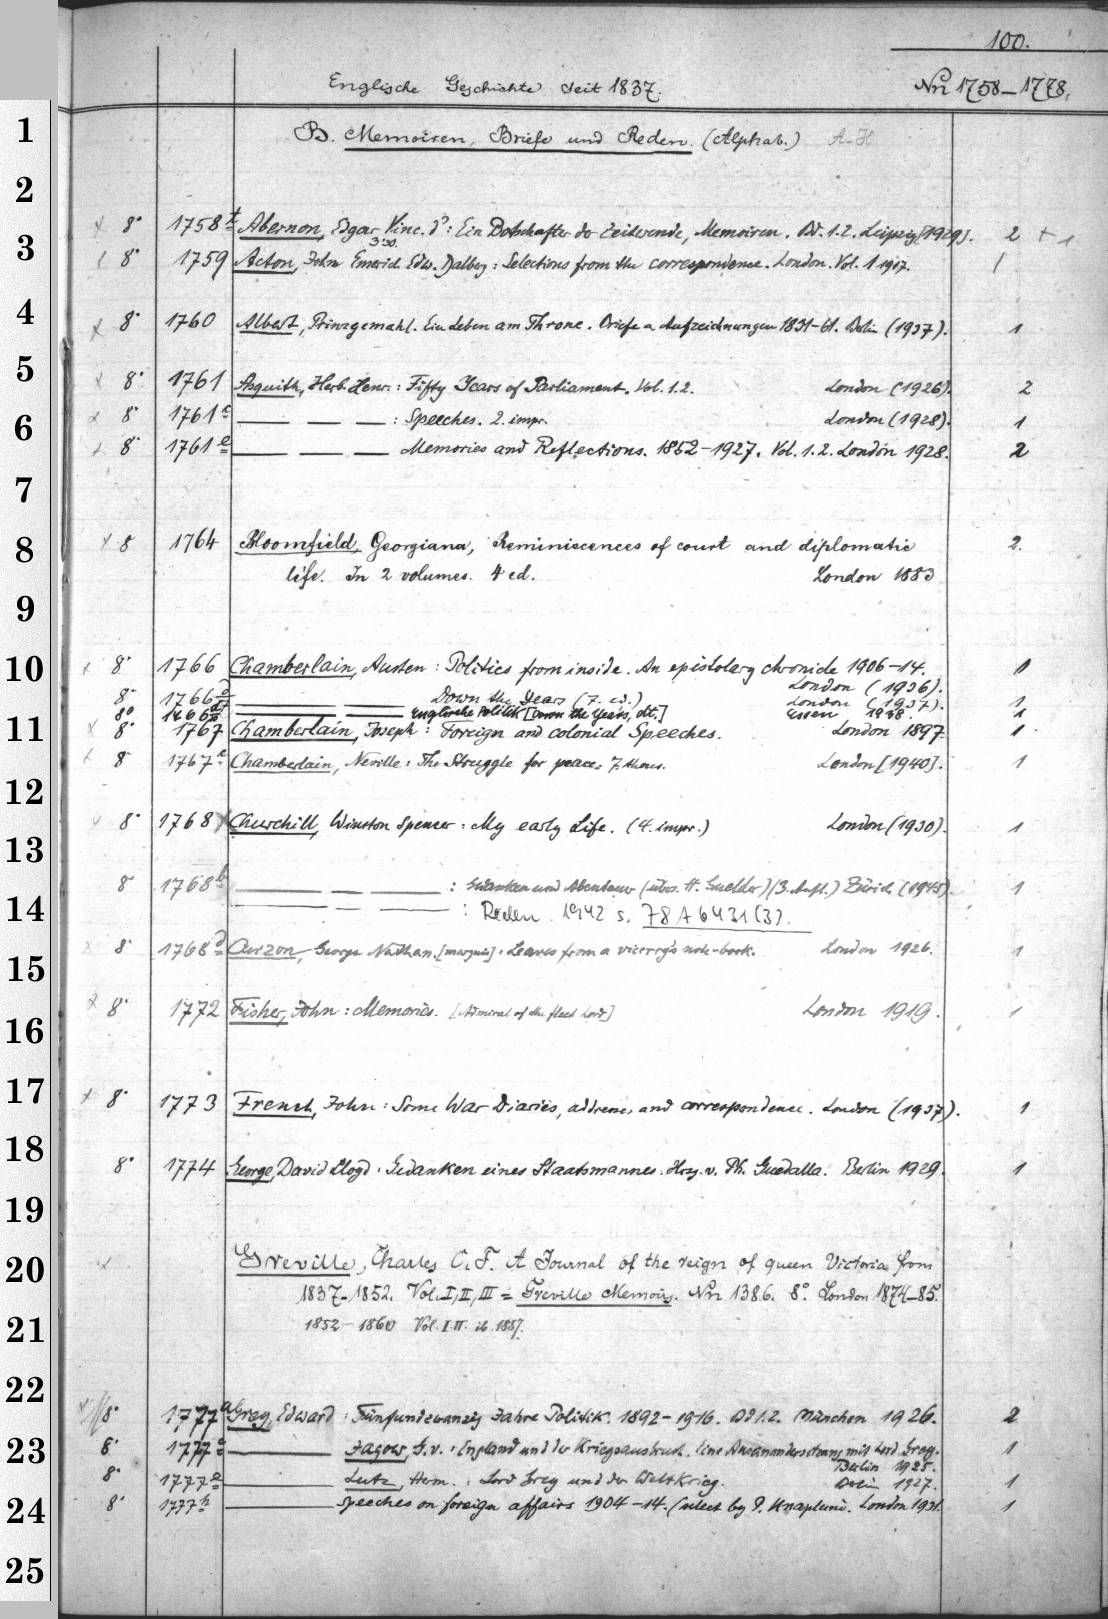 100.
Englische Geschichte seit 1837.
Nrn 1758–1778.
1
B. Memoiren, Briefe und Reden. (Alphab.) A-H
2
8° 1758 Abernon, Edgar Vinc. d': Ein Botschafter der Zeitwende, Memoiren. Bd. 1.2. Leipzig (1929). 2 + 1
3
8° 1759 Acton, John Emerich Edw. Dalberg: Selections from the correspondence. London. Vol. 1 1917. 1
4
8° 1760 Albert, Prinzgemahl. Ein Leben am Throne. Briefe u. Aufzeichnungen 1831–61. Berlin (1937). 1
5
8° 1761 Asquith, Herb. Henr.: Fifty Years of Parliament. Vol. 1.2. London (1926). 2
8° 1761c — — — : Speeches. 2. impr. London (1928). 1
6
8° 1761e — — — Memories and Reflections. 1852–1927. Vol. 1.2. London 1928. 2
7
8 1764 Bloomfield, Georgiana, Reminiscences of court and diplomatic 2.
8
life. In 2 volumes. 4 ed. London 1883
9
8° 1766 Chamberlain, Austen: Politics from inside. An epistolary chronicle 1906–14. 1
10
London (1936).
8° 1766 — — Down the Years (7. ed.) London (1937). 1
8° 1766 — — Englische Politik [Down the Years, dt.] Essen 1938. 1
11
8° 1767 Chamberlain, Joseph: Foreign and colonial Speeches. London 1897. 1
8 1767 Chamberlain, Neville: The Struggle for peace. 7. thous. London [1940]. 1
12
8° 1768 Churchill, Winston Spencer: My early Life. (4. impr.) London (1930). 1
13
8 1768b — — — : Gedanken und Abenteuer (übers. H. Guelder) (3. Aufl.) Zürich (1945). 1
14
— — — : Reden. 1942 s. 78 A 6431 (3).
8° 1768d Curzon, George Nathan. [marquis]: Leaves from a viceroy's note-book. London 1926. 1
15
8° 1772 Fisher, John: Memories. [Admiral of the fleet Lord] London 1919. 1
16
17
8° 1773 French, John: Some War Diaries, addresses, and correspondence. London (1937). 1
18
8° 1774 George, David Lloyd: Gedanken eines Staatsmannes. Hrsg. v. Ph. Guedalla. Berlin 1929. 1
19
Greville, Charles C. F. A Journal of the reign of queen Victoria from
20
1837–1852. Vol. I, II, III = Greville Memoirs. Nrn 1386. 8° London 1874–85.
1852–1860 Vol. I.II. ib. 1887.
21
22
8° 1777a Grey, Edward: Fünfundzwanzig Jahre Politik. 1892–1916. Bd 1.2. München 1926. 2
23
8° 1777c — Jagow, G. v.: England und der Kriegsausbruch. Eine Auseinandersetzung mit Lord Grey. 1
Berlin 1925.
8° 1777e — Lutz, Herm.: Lord Grey und der Weltkrieg. Berlin 1927. 1
24
8° 1777h — Speeches on foreign affairs 1904–14. (select by P. Knaplund. London 1931. 1
25